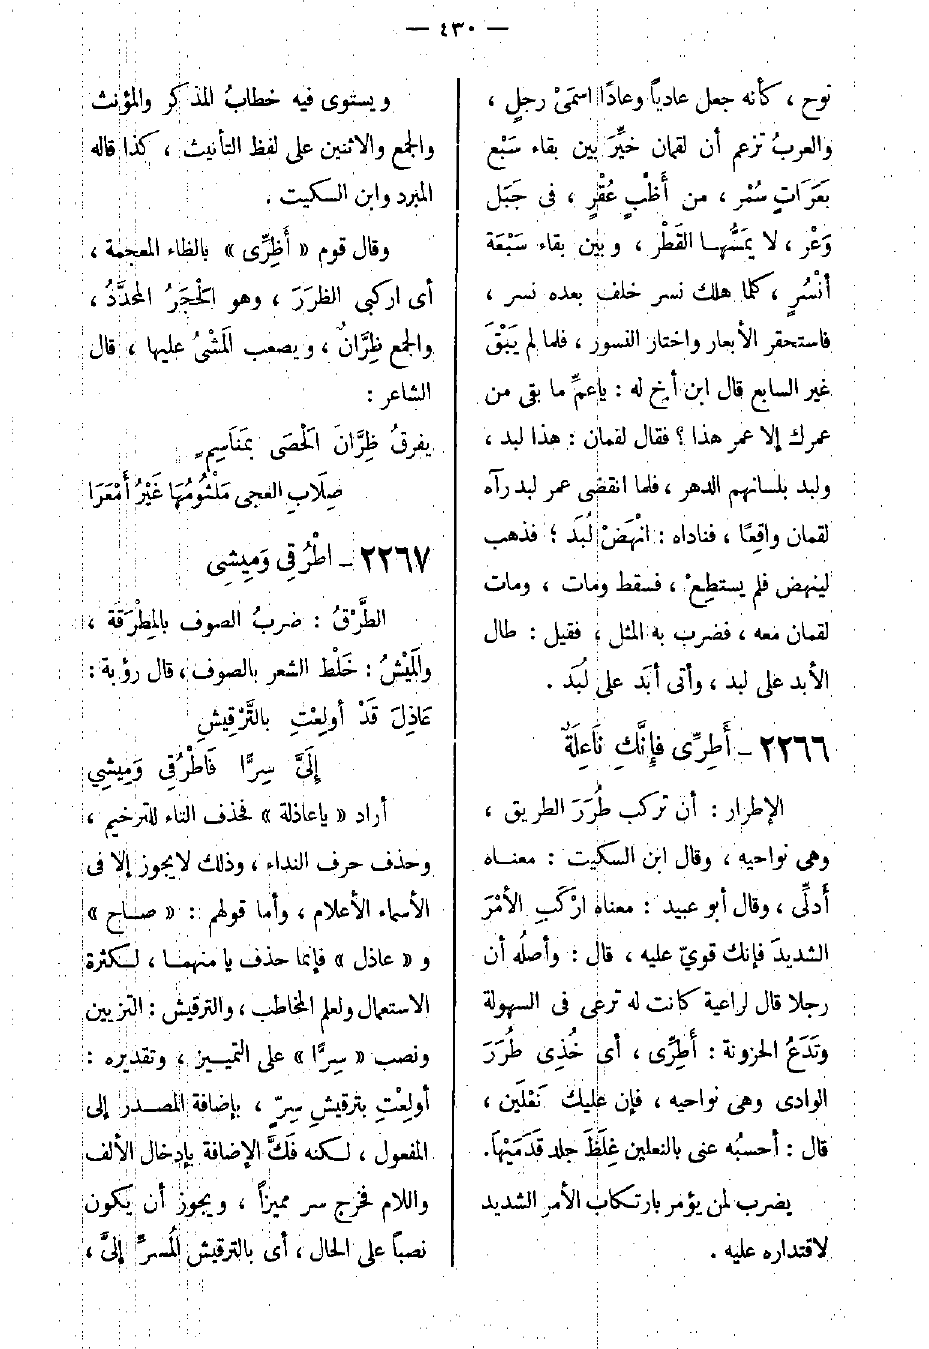 — ٤٣٠ —
نوح ، كأنه جعل عادياً وعادًا اسمَىْ رجلٍ ،
والعربُ تزعم أن لقمان خيِّرَ بين بقاء سَبْع
بَعَرَاتٍ سُمْرٍ ، من أَظْبٍ عُفْرٍ ، فى جَبَل
وَعْر ، لا يمَسُّهـا القَطْر ، وبين بقاء سَبْعَة
أنْسُرٍ ، كلما هلك نسر خلف بعده نسر ،
فاستحقر الأبعار واختار النسور ، فلما لم يَبْقَ
غير السابع قال ابن أخ له : ياعمِّ ما بقى من
عمرك إلا عمر هذا ؟ فقال لقمان : هذا لبد ،
ولبد بلسانهم الدهر ، فلما انقضى عمر لبد رآه
لقمان واقِعًا ، فناداه : انْهَضْ لُبَد ؛ فذهب
لينهض فلم يستطِعْ ، فسقط ومات ، ومات
لقمان معه ، فضرب به المثل ، فقيل : طال
الأبد على لبد ، وأتى أبَد على لُبَد .
٢٢٦٦ ــ أَطِرِّى فإِنَّكِ نَاعِلَةٌ
الإطرار : أن تركب طُرَرَ الطريق ،
وهى نواحيه ، وقال ابن السكيت : معنـاه
أَدلِّى ، وقال أبو عبيد : معناه ارْكَبِ الأمْرَ
الشديدَ فإنك قوىّ عليه ، قال : وأصلُه أن
رجلا قال لراعية كانت له ترعى فى السهولة
وتَدَعُ الحزونة : أَطِرِّى ، أى خُذِى طُرَرَ
الوادى وهى نواحيه ، فإن عليك نَعْلَين ،
قال : أحسبُه عنى بالنعلين غِلَظَ جلد قَدَمَيْها.
يضرب لمن يؤمر بارتكاب الأمر الشديد
لاقتداره عليه .
ويستوى فيه خطابُ المذكر والمؤنث
والجمع والاثنين على لفظ التأنيث ، كذا قاله
المبرد وابن السكيت .
وقال قوم « أَظِرِّى » بالظاء المعجمة ،
أى اركبى الظرَرَ ، وهو الحْجَرُ المحدَّدُ ،
والجمع ظِرَّانٌ ، ويصعب الَمشْىُ عليها ، قال
الشاعر :
يفرقُ ظِرَّانَ الْحَصَى بِمَنَاسِمٍ
صِلَابِ العجى مَلْثُومُهَا غَيْرُ أَمْعَرَا
٢٢٦٧ ــ اطْرُقِى وَمِيشِى
الطَّرْقُ : ضربُ الصوف بالمِطْرَقة ،
والَميْشُ : خَلْط الشعر بالصوف ، قال رؤبة :
عَاذِلَ قَدْ أُولِعْتِ بالتَّرْقِيشِ
إِلَىَّ سِرًّا فَاطْرُقِى وَمِيشِي
أراد « ياعاذلة » فحذف التاء للترخيم ،
وحذف حرف النداء ، وذلك لايجوز إلا فى
الأسماء الأعلام ، وأما قولهم : « صـاح »
و « عاذل » فإنما حذف يا منهمـا ، لـكثرة
الاستعمال ولعلم المخاطب ، والترقيش : التزيين
ونصب « سِرًّا » على التمييـز ، وتقديره :
أولِعْتِ بترقيشِ سِرٍّ ، بإضافة المصـدر إلى
المفعول ، لـكنه فَكَّ الإضافة بإدخال الألف
واللام فخرج سر مميزاً ، ويجوز أن يكون
نصباً على الحال ، أى بالترقيش الُمسرِّ إلىَّ ،